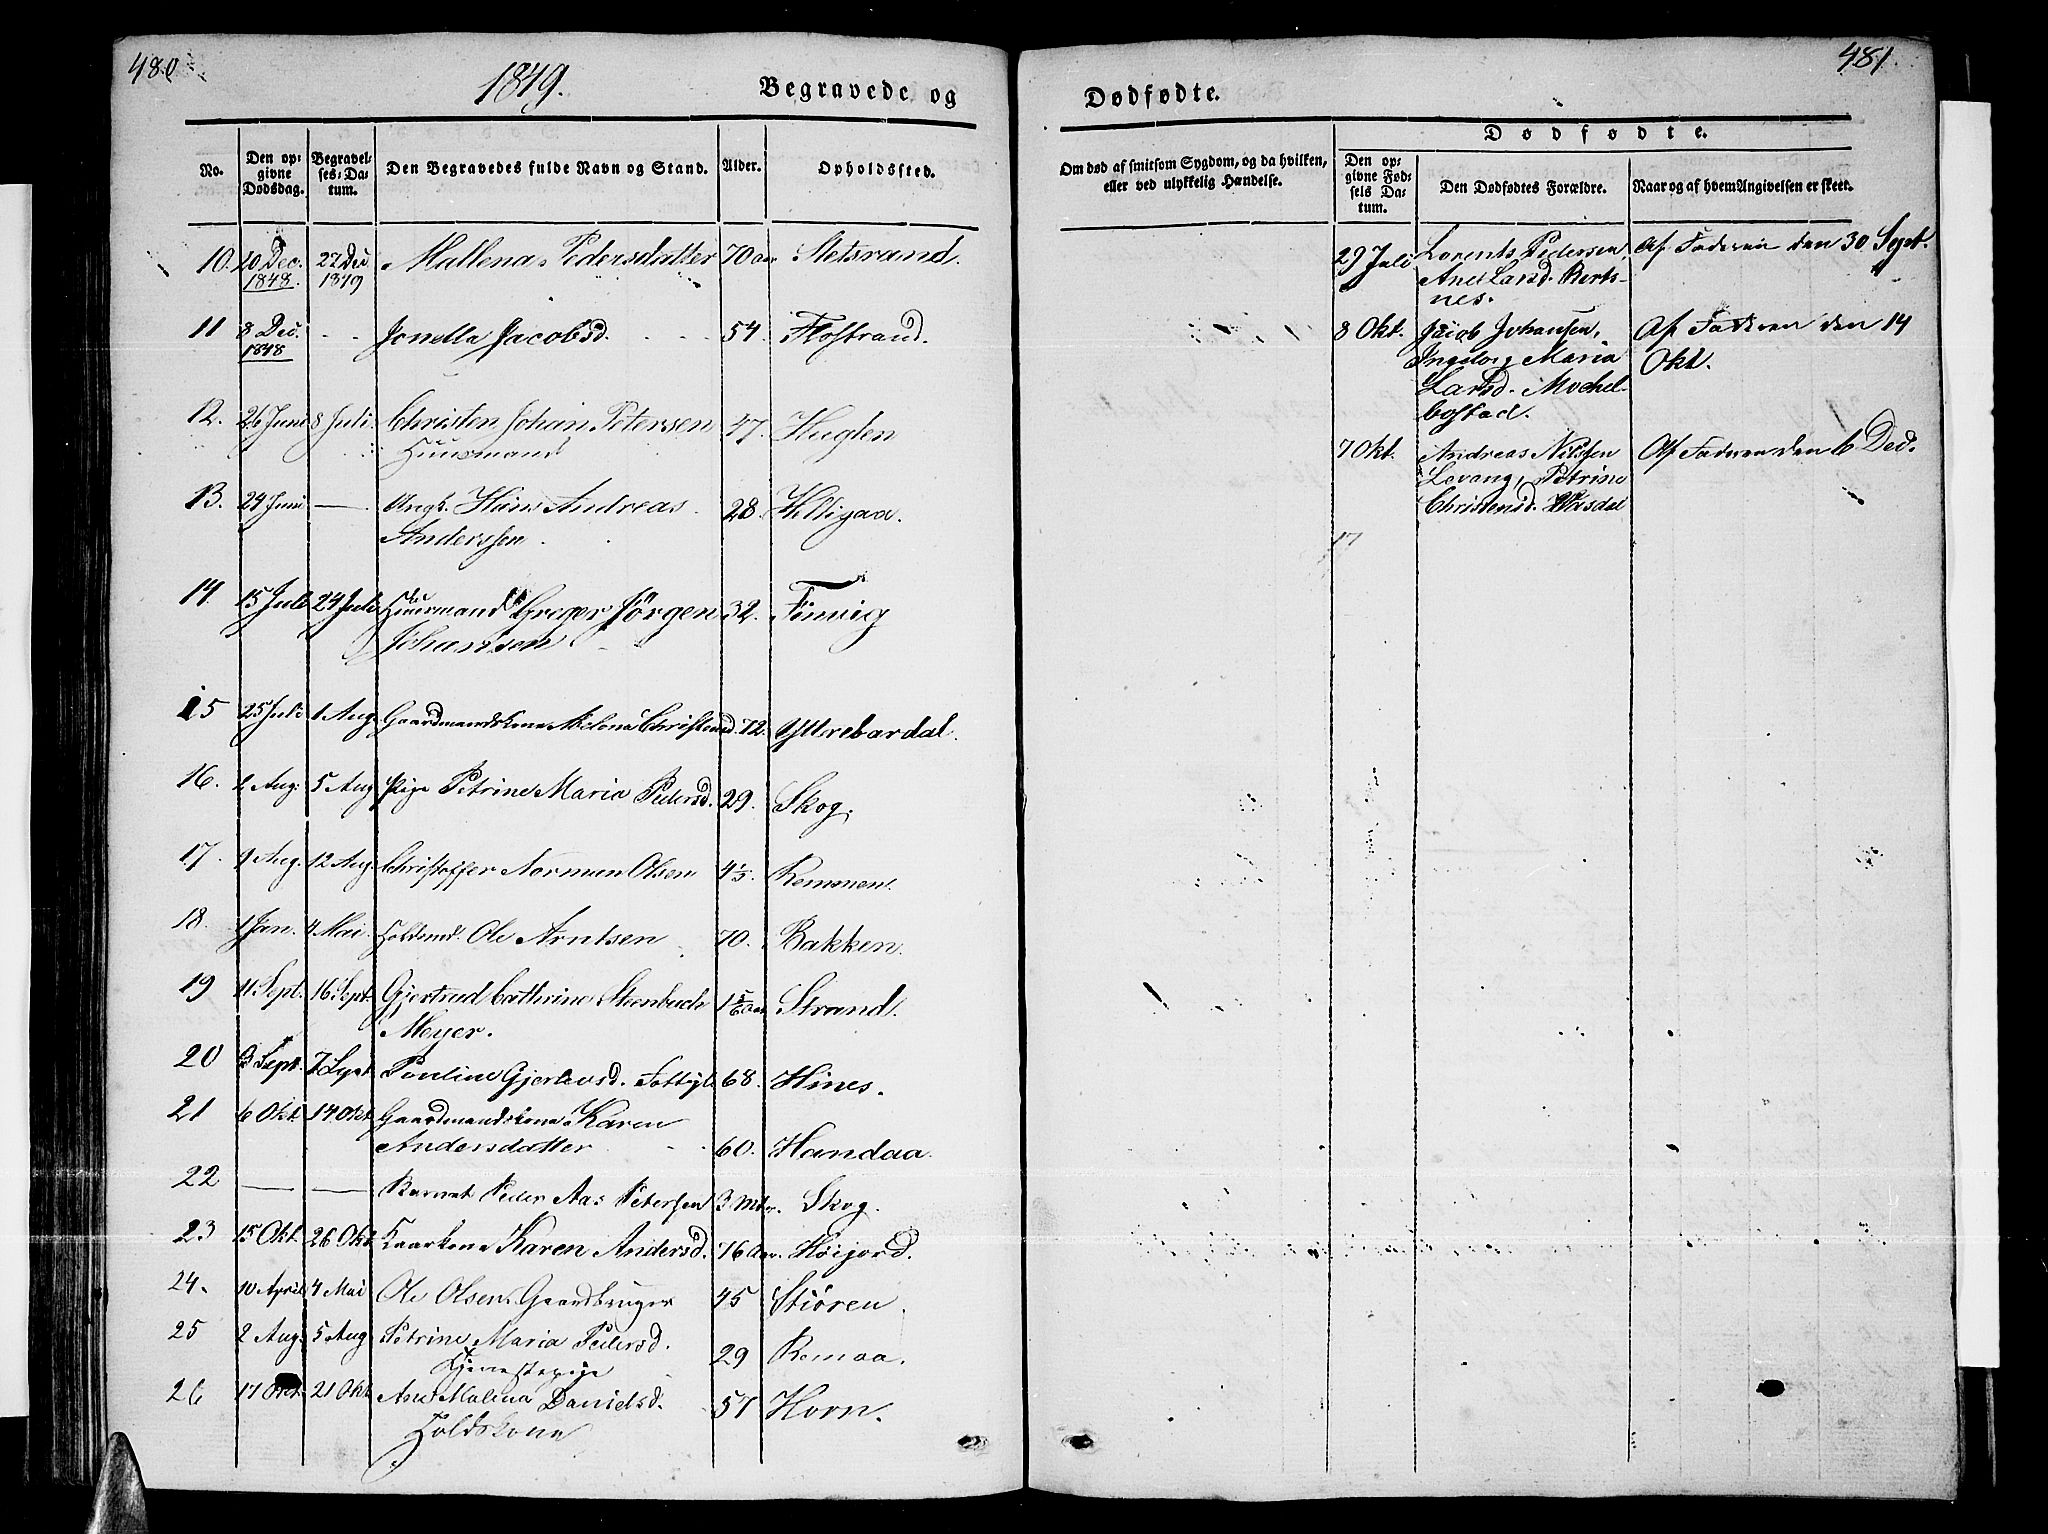 480
1849.
Begravede og
No.
Den opgivne Dødsdag.
Begravelses-Datum.
Den Begravedes fulde Navn og Stand.
Alder.
Opholdssted.
10. 20 Dec. 1848. 27 Dec 1849 Mallena Pedersdatter 70 aar Sletsrand.
11 8 Dec. 1848 - - Jonella Jacobsd. 54. Flostrand.
12. 26 Juni 8 Juli. Christen Johan Petersen 47. Huglen
Huusmand
13. 24 Juni — Ungk. Hans Andreas 28. Helligaa.
Anderssen.
14. 15 Juli 24 Juli Huusmand Greger Jørgen 32. Finvig
Johansen
15 25 Juli 1 Aug Gaardmandskone Christensd. 72. Yttrebardal.
16. 2 Aug. 5 Aug Pige Petrine Maria Pedersd. 29. Skog.
17. 9 Aug. 12 Aug. Christoffer Normun Olsen 4 1/3. Remmen.
18. 1 Jan. 4 Mai. Ole Arntsen 70. Bakken.
19 11 Sept. 16 Sept. Gjertrud Cathrine Steenbuch 1 5/6 aar Strand.
Meyer.
20 3 Sept. 7 Sept Pauline Gjertsd. 68. Hines.
21 6 Okt. 14 Okt. Gaardmandskone Karen
Andersdatter 60. Handaa.
22 — — Barnet Peder Aas Petersen 3 Mdr. Skog.
23 15 Okt. 26 Okt. Kaarkone Karen Andersd. 76 Aar. Høijord.
24. 10 April 4 Mai Ole Olsen Gaardbruger 45 Stiøren.
25 2 Aug. 5 Aug Petrine Maria Pedersd. 29 Remaa.
Tjenestepige
26 17 Okt. 21 Okt Ane Malena Danielsd. 57 Horn.
Holdskone
481.
Dødfødte.
Om død af smitsom Sygdom, og da hvilken,
eller ved ulykkelig Hændelse.
Dødfødte.
Den opgivne Fødsels Datum.
Den Dødfødtes Forældre.
Naar og af hvem Angivelsen er skeet.
29 Juli Lorents Pedersen, Af Faderen den 30 Sept.
Ane Larsd. Bertsnes.
8 Okt. Jacob Johansen, Af Faderen den 14
Ingeborg Maria Okt.
Larsd. Mochelbostad.
7 Okt. Andreas Nilssen Af Faderen den 6 Dec.
Levang, Petrine
Christensd.
17